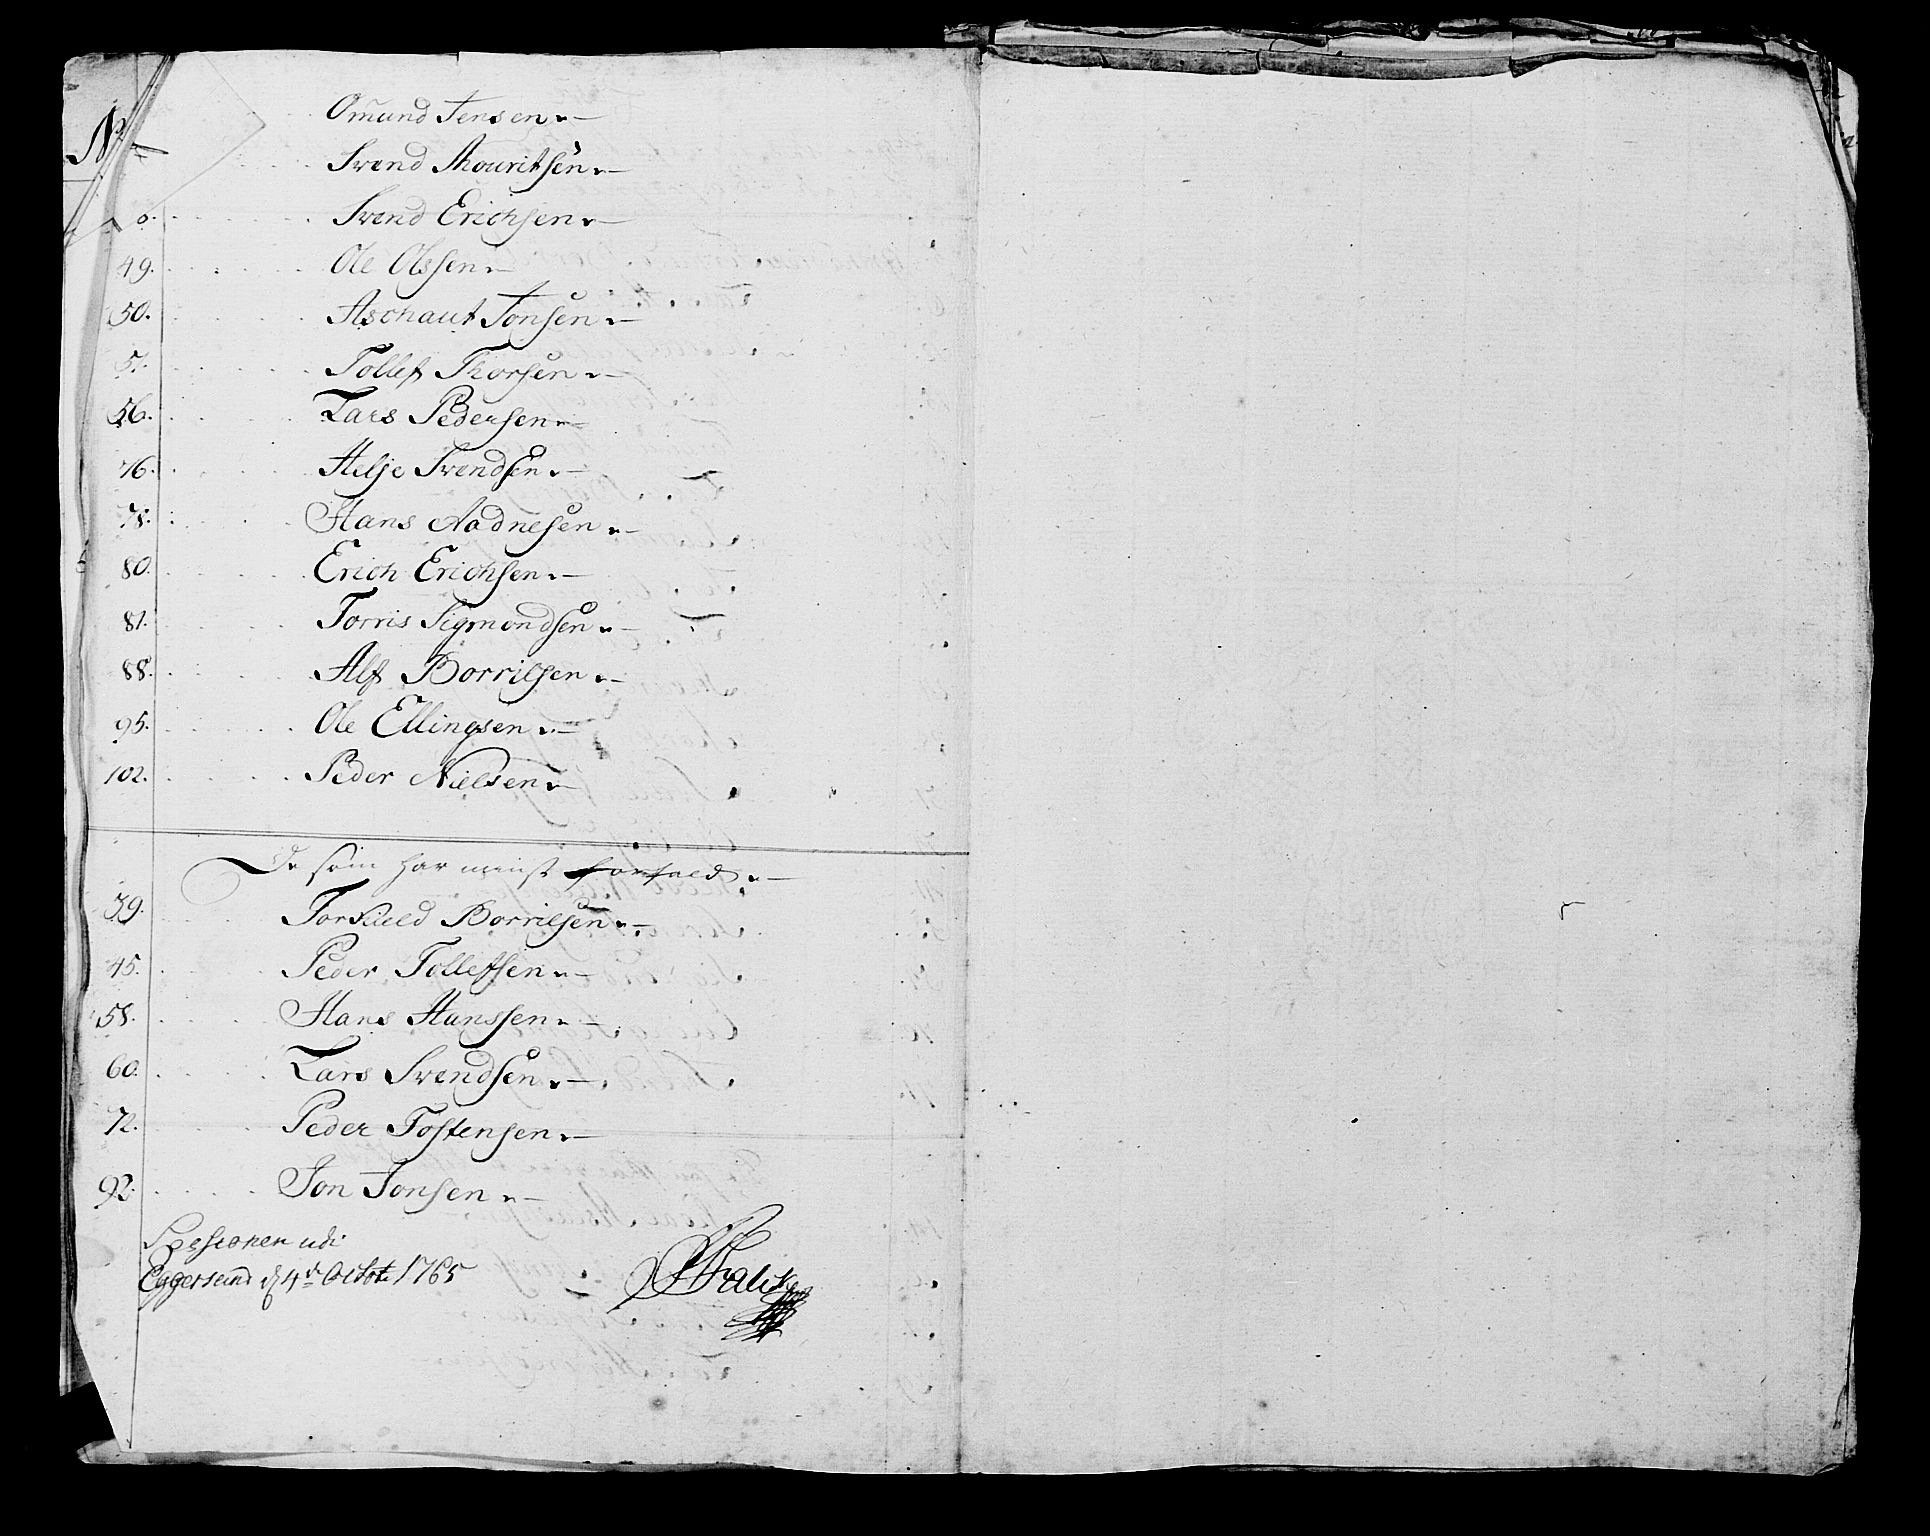 No
Omund Jensen
Svend Mouritsen
0. Svend Erichsen
49. Ole Olssen
50. Aschaut Jonsen
51. Tollef Thorsen
56. Lars Pedersen
76. Helje Svendsen
78. Hans Aadnesen
80. Erich Erichsen
81. Torris Sigmondsen
88. Alf Borrilsen
95. Ole Ellingsen
102. Peder Nielsen
De som har minst forfald
39. Torkield Borrilsen
45. Peder Tollefsen
58. Hans Hanssen
60. Lars Svendsen
72. Peder Tostensen
92. Jon Jonsen
Sessionen udi
Eggersund d 4de Octob: 1765